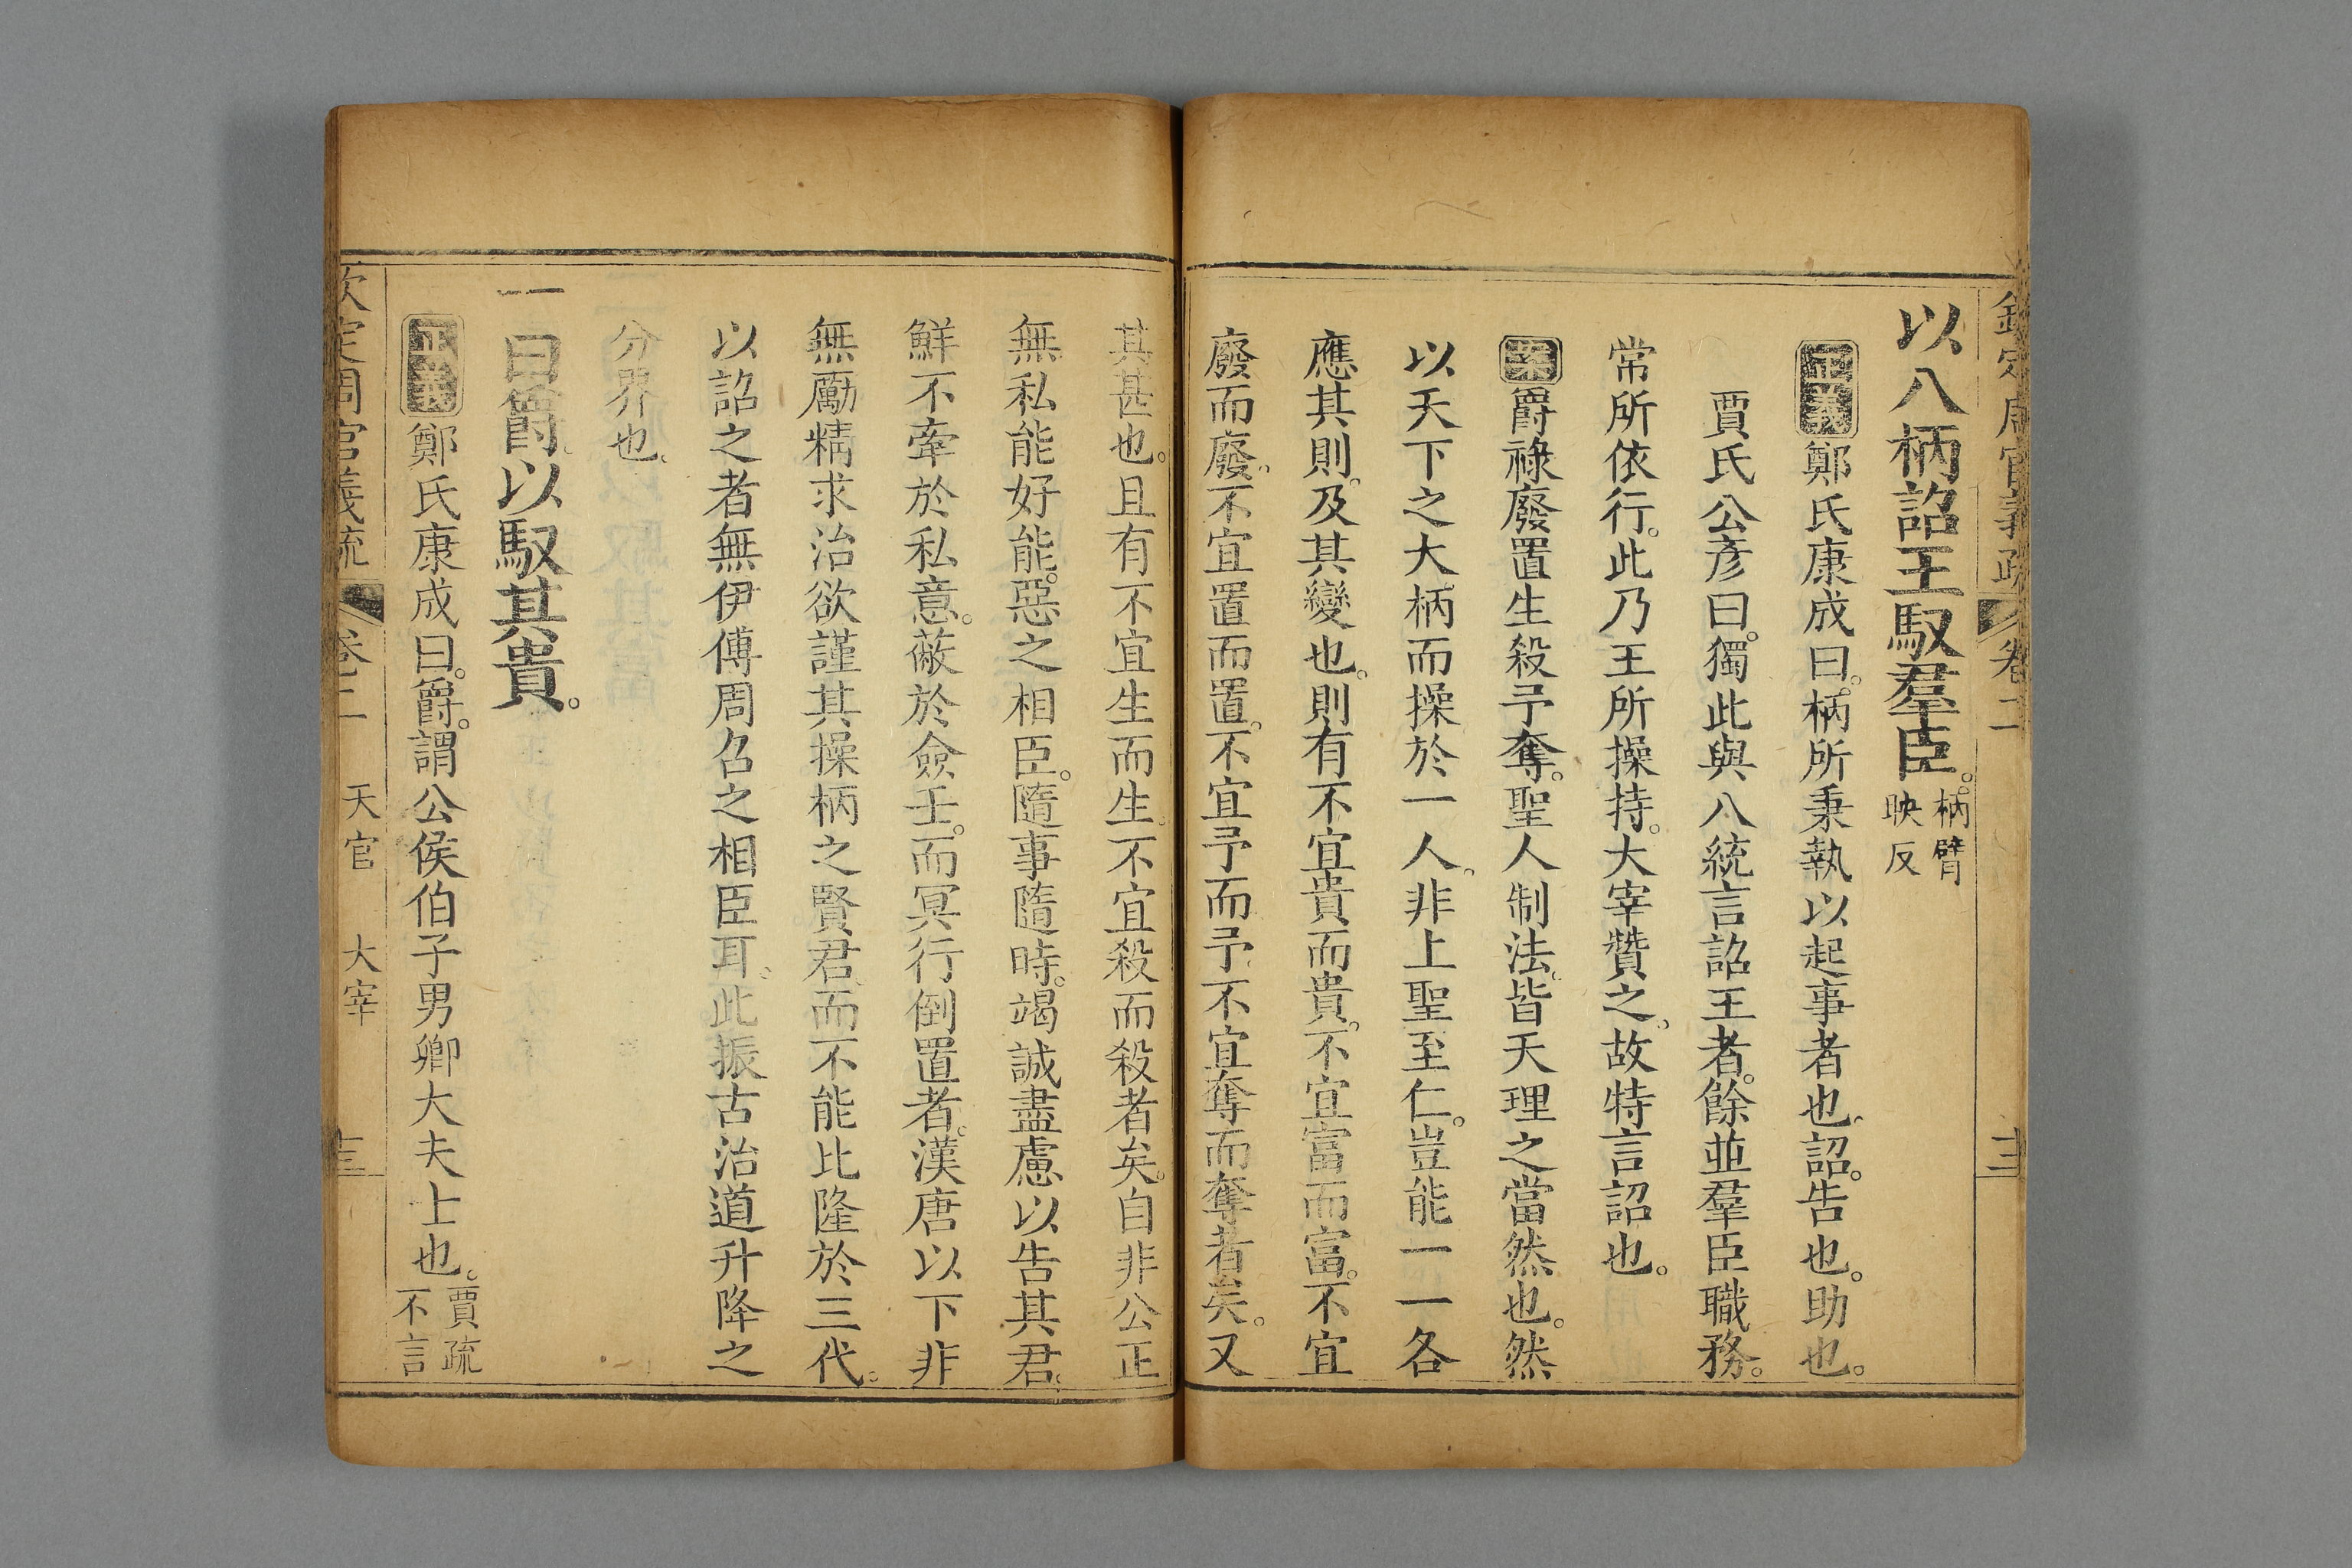 欽定周官義疏 卷二 十三
以八柄詔王馭羣臣。柄臂
映反
正義鄭氏康成曰。柄所秉執以起事者也。詔。告也。助也。
賈氏公彥曰。獨此與八統言詔王者。餘並羣臣職務。
常所依行。此乃王所操持。大宰贊之。故特言詔也。
案爵祿廢置生殺予奪。聖人制法。皆天理之當然也。然
以天下之大柄而操於一人。非上聖至仁。豈能一一各
應其則。及其變也。則有不宜貴而貴。不宜富而富。不宜
廢而廢。不宜置而置。不宜予而予。不宜奪而奪者矣。又
其甚也。且有不宜生而生。不宜殺而殺者矣。自非公正
無私能好能惡之相臣。隨事隨時。竭誠盡慮以告其君。
鮮不牽於私意。蔽於僉壬。而冥行倒置者。漢唐以下非
無勵精求治欲謹其操柄之賢君。而不能比隆於三代。
以詔之者無伊傅周召之相臣耳。此振古治道升降之
分界也。
一曰爵。以馭其貴。
正義鄭氏康成曰。爵。謂公侯伯子男卿大夫上也。賈疏
不言
欽定周官義疏 卷二 天官 大宰 十三